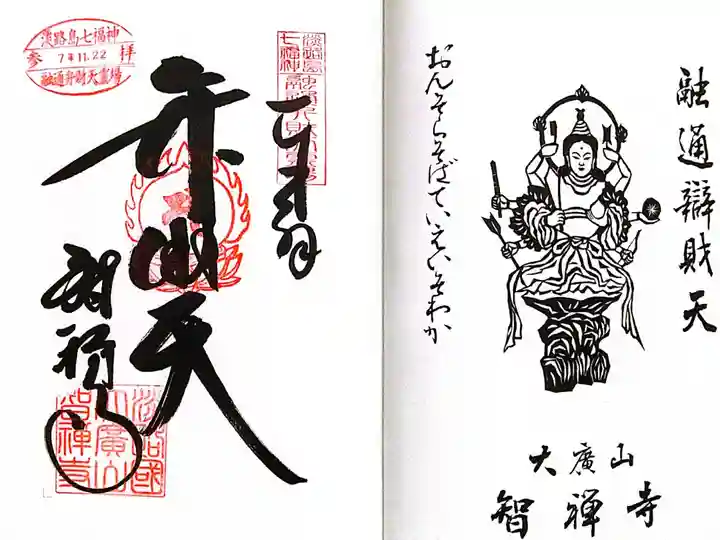 融通辯財天
おんそらそばていえいそわか
大廣山
智禅寺
奉拝
弁財天
智禅寺
淡路島七福神
参 7年11.22 拝
融通弁財天霊場
淡路島
七福神
淡路國
大廣山
智禅寺